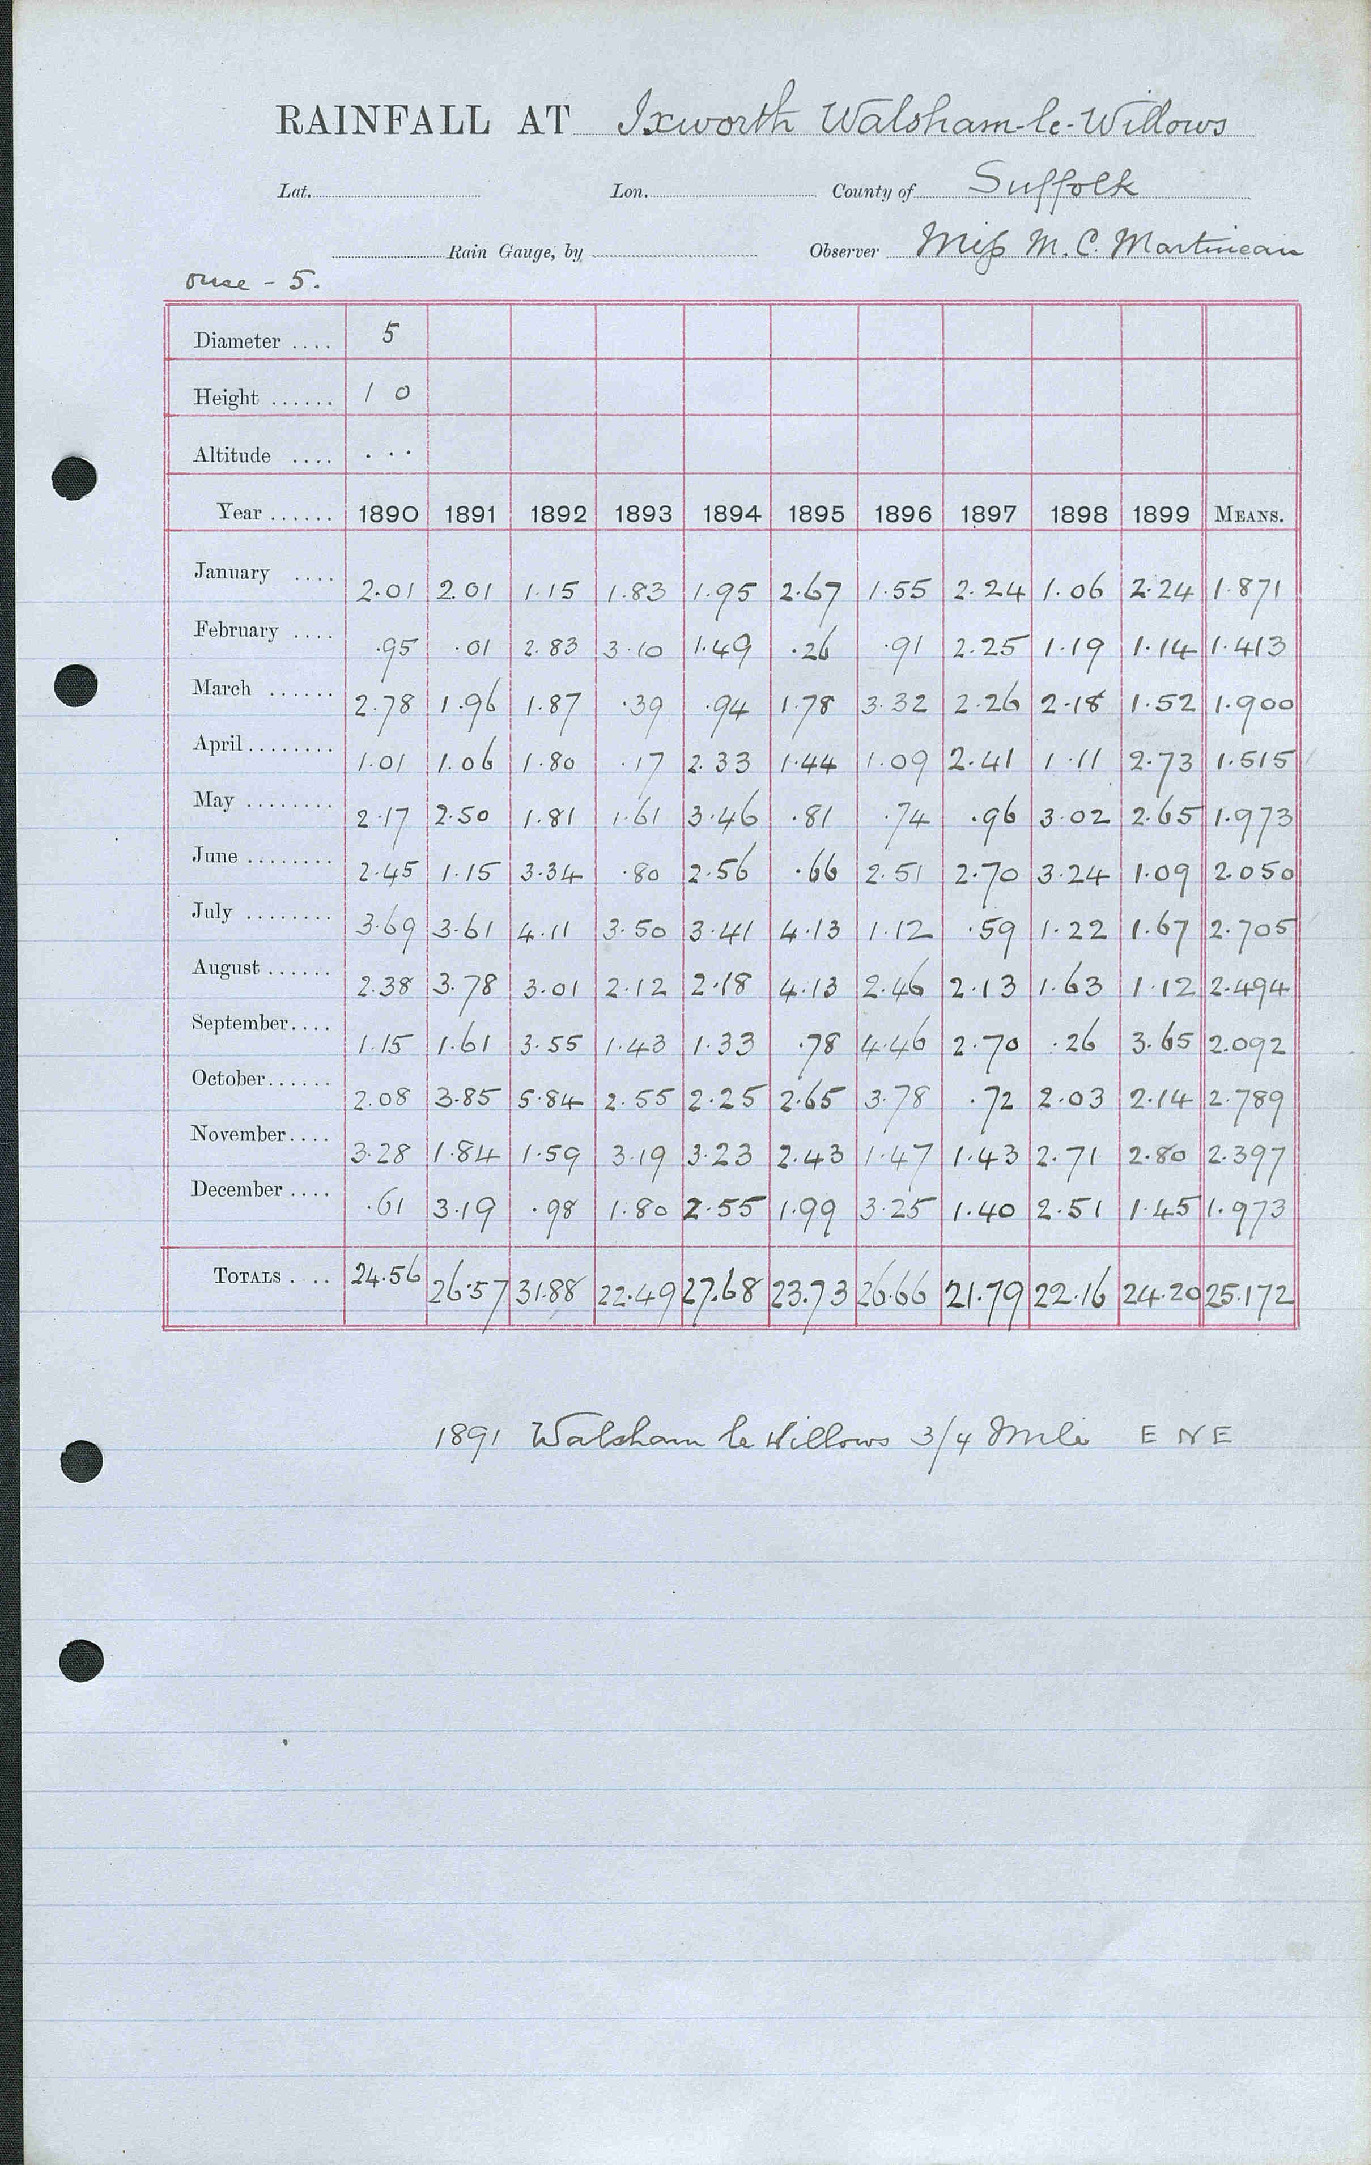 RAINFALL AT Ixworth Walsham-le-Willows
Lat. Lon. County of Suffolk
Rain Gauge, by Observer Miss M. C. Martineau
Ouse - 5.
Diameter .... 5
Height ...... 1 0
Altitude .... . . .
Year ...... 1890 1891 1892 1893 1894 1895 1896 1897 1898 1899 MEANS.
January .... 2.01 2.01 1.15 1.83 1.95 2.67 1.55 2.24 1.06 2.24 1.871
February .... .95 .01 2.83 3.10 1.49 .26 .91 2.25 1.19 1.14 1.413
March ...... 2.78 1.96 1.87 .39 .94 1.78 3.32 2.26 2.18 1.52 1.900
April ........ 1.01 1.06 1.80 .17 2.33 1.44 1.09 2.41 1.11 2.73 1.515
May ........ 2.17 2.50 1.81 1.61 3.46 .81 .74 .96 3.02 2.65 1.973
June ........ 2.45 1.15 3.34 .80 2.56 .66 2.51 2.70 3.24 1.09 2.050
July ........ 3.69 3.61 4.11 3.50 3.41 4.13 1.12 .59 1.22 1.67 2.705
August ...... 2.38 3.78 3.01 2.12 2.18 4.13 2.46 2.13 1.63 1.12 2.494
September.... 1.15 1.61 3.55 1.43 1.33 .78 4.46 2.70 .26 3.65 2.092
October...... 2.08 3.85 5.84 2.55 2.25 2.65 3.78 .72 2.03 2.14 2.789
November.... 3.28 1.84 1.59 3.19 3.23 2.43 1.47 1.43 2.71 2.80 2.397
December .... .61 3.19 .98 1.80 2.55 1.99 3.25 1.40 2.51 1.45 1.973
TOTALS .... 24.56 26.57 31.88 22.49 27.68 23.73 26.66 21.79 22.16 24.20 25.172
1891 Walsham le Willows 3/4 Mile E N E